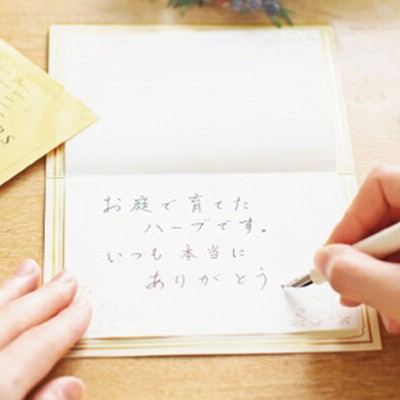 お庭で育てた
ハーブです。
いつも本当に
ありがとう